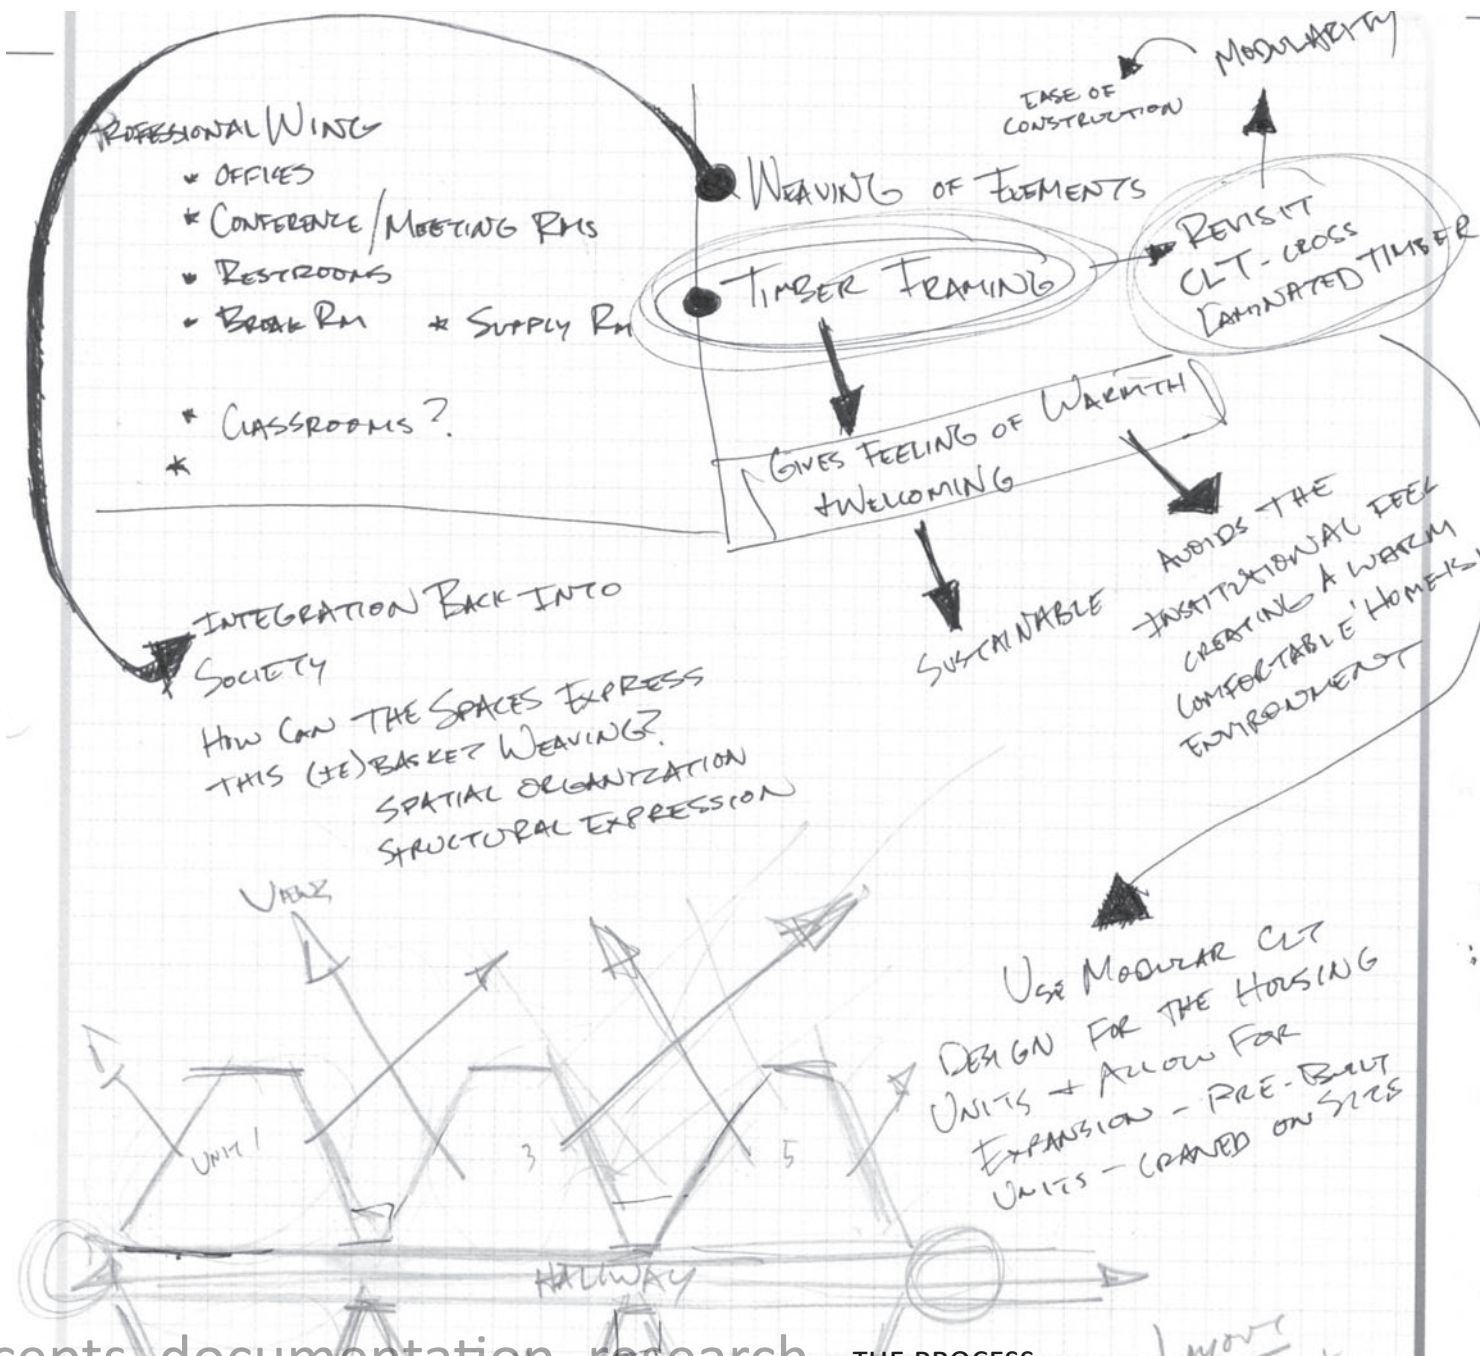 PROFESSIONAL WING
* OFFICES
* CONFERENCE/MEETING RMS
* RESTROOMS
* BREAK RM * SUPPLY RM
* CLASSROOMS?
*
MODULARITY
EASE OF
CONSTRUCTION
WEAVING OF ELEMENTS
TIMBER FRAMING
REVISIT
CLT - CROSS
LAMINATED TIMBER
GIVES FEELING OF WARMTH
+ WELCOMING
SUSTAINABLE
AVOIDS THE
INSTITUTIONAL FEEL
CREATING A WARM
COMFORTABLE
ENVIRONMENT
INTEGRATION BACK INTO
SOCIETY
HOW CAN THE SPACES EXPRESS
THIS (IE) BASKET WEAVING?
SPATIAL ORGANIZATION
STRUCTURAL EXPRESSION
USE MODULAR CLT
DESIGN FOR THE HOUSING
UNITS + ALLOW FOR
EXPANSION - PRE-BUILT
UNITS - CRANED ON SITE
VIEWS
UNIT 1
3
5
HALLWAY
documentation research
THE PROCESS